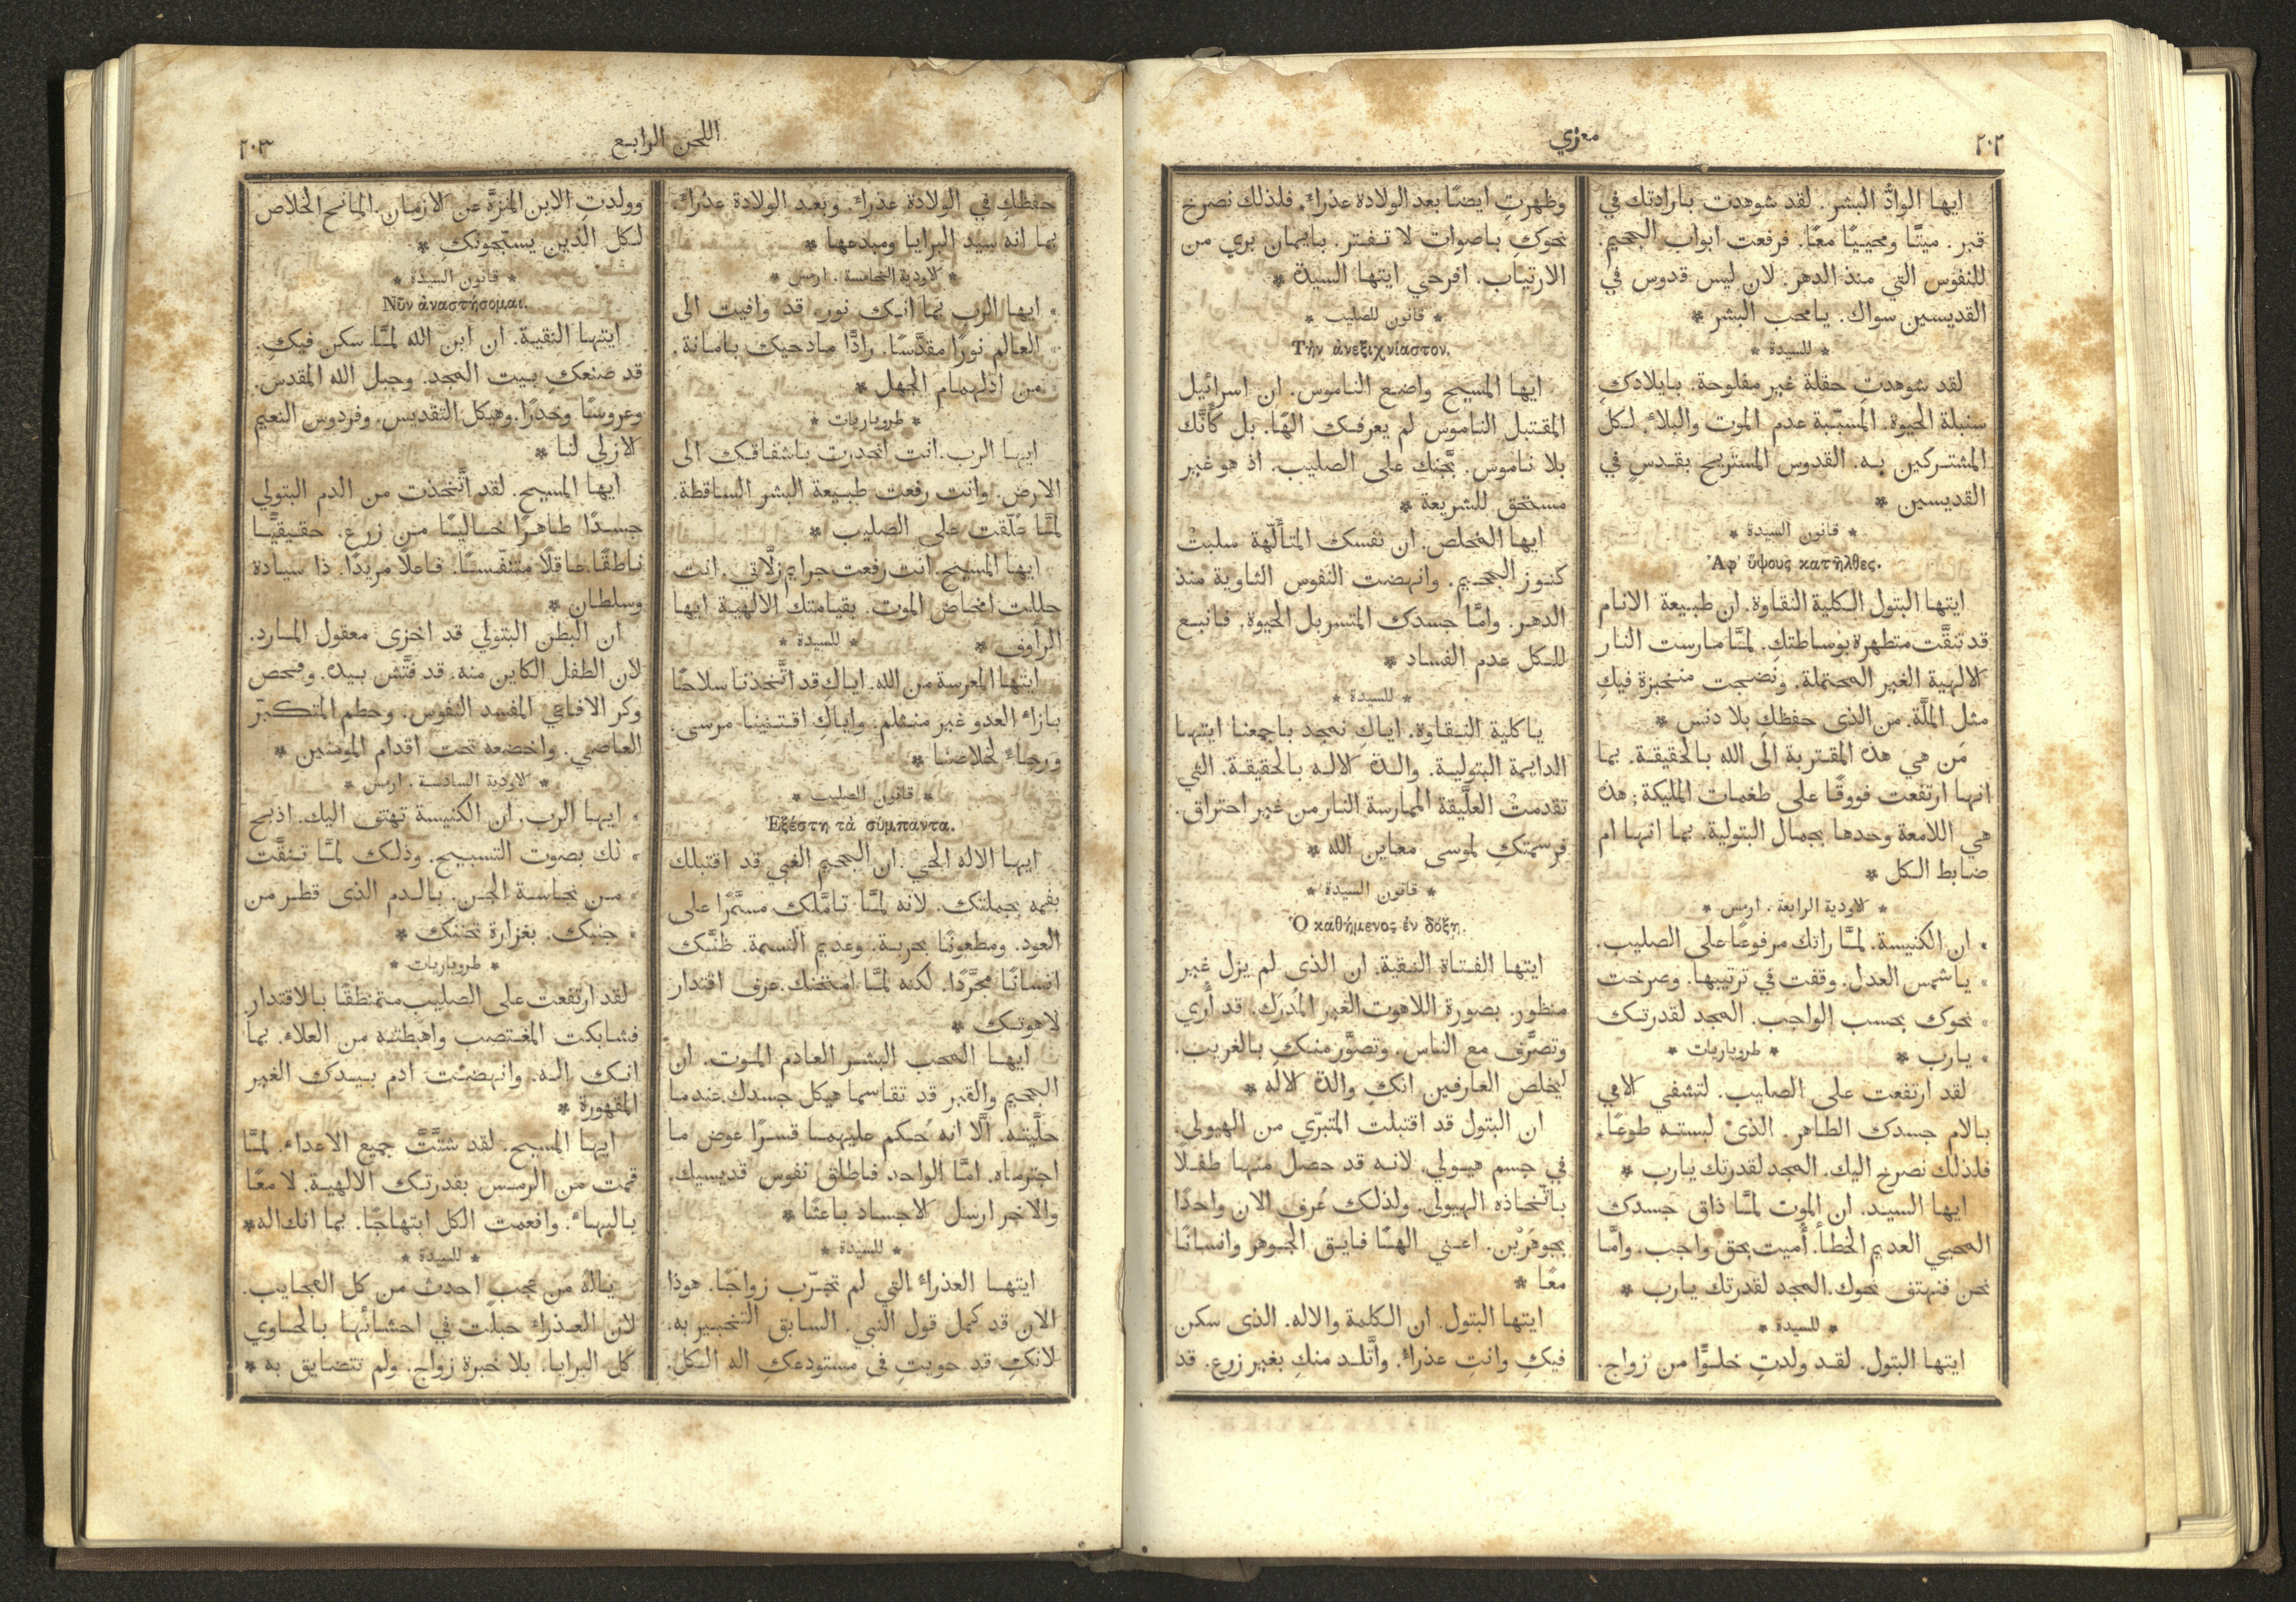 ٢٠٢
معزي
ايها الوادُّ البشر. لقد شوهدت بارادتك في
قبر. ميتًا ومحييًا معًا. فرفعت ابواب الجحيم.
للنفوس التي منذ الدهر. لان ليس قدوس في
القديسين سواك. يا محب البشر *
* للسيدة *
لقد شوهدتِ حقلة غير مفلوحة. بايلادكِ
سنبلة الحيوة. المسبّبة عدم الموت والبلاءِ. لكل
المشتركين به. القدوس المستريح بقدسٍ في
القديسين *
* قانون السيدة *
Ἀφ' ὕψους κατῆλθες.
ايتها البتول الكلية النقاوة. ان طبيعة الانام
قد تنقَّت متطهرة بوساطتكِ. لمَّا مارست النار
الالهية الغير المحتملة. ونضجت منخبزة فيكِ
مثل الملَّة. من الذى حفظكِ بلا دنس *
مَن هي هذه المقتربة الى الله بالحقيقة. بما
انها ارتفعت فووقًا على طغمات المليكة; هذه
هي اللامعة وحدها بجمال البتولية. بما انها ام
ضابط الكل *
* الاودية الرابعة. ارمس *
" ان الكنيسة. لمَّا راتك مرفوعًا على الصليب.
" يا شمس العدل. وقفت في ترتيبها. وصرخت
" نحوك بحسب الواجب. المجد لقدرتك
" يا رب * * طروباريات *
لقد ارتفعت على الصليب. لتشفي الامي
بالام جسدك الطاهر. الذى لبسته طوعًا.
فلذلك نصرخ اليك. المجد لقدرتك يا رب *
ايها السيد. ان الموت لمَّا ذاق جسدك
المحيي العديم الخطأ. أُميت بحق واجب. وامَّا
نحن فنهتف نحوك. المجد لقدرتك يا رب *
* للسيدة *
ايتها البتول. لقد ولدتِ خلوًّا من زواج.
وظهرتِ ايضًا بعد الولادة عذراءَ. فلذلك نصرخ
نحوكِ باصوات لا تفتر. بايمان بري من
الارتياب. افرحي ايتها السيدة *
* قانون للصليب *
Τὴν ἀνεξιχνίαστον.
ايها المسيح واضع الناموس. ان اسرائيل
المقتبل الناموس لم يعرفك الهًا. بل كأنَّك
بلا ناموس. يَجنك على الصليب. اذ هو غير
مستحق للشريعة *
ايها المخلص. ان نفسك المتألّهة سلبتْ
كنوز الجحيم. وانهضت النفوس الثاوية منذ
الدهر. وامَّا جسدك المتسربل الحيوة. فانبع
للكل عدم الفساد *
* للسيدة *
يا كلية النقاوة. اياكِ نمجد باجمعنا ايتها
الدايمة البتولية. والدة الاله بالحقيقة. التي
تقدمتْ العلَّيقة الممارسة النار من غير احتراق.
فرسمتكِ لموسى معاين الله *
* قانون السيدة *
Ὁ καθήμενος ἐν δόξῃ.
ايتها الفتاة النقية. ان الذى لم يزل غير
منظور. بصورة اللاهوت الغير المُدرَك. قد أُري
وتصرَّف مع الناس. وتصوَّر منكِ بالغريب.
ليخلص العارفين انكِ والدة الاله *
ان البتول قد اقتبلت المتبرّي من الهيولي.
في جسم هيولي. لانه قد حصل منها طفلًا
باتّخاذه الهيولى. ولذلك عُرف الان واحدًا
بجوهَرَيْن. اعني الهًا فايق الجوهر وانسانًا
معًا *
ايتها البتول. ان الكلمة والاله. الذى سكن
فيكِ وانتِ عذراءُ. واتَّلد منكِ بغير زرع. قد
اللحن الرابع
٢٠٣
حفظكِ في الولادة عذراءَ. وبعد الولادة عذراءَ.
بما انه سيد البرايا ومبدعها *
* الاودية الخامسة. ارمس *
" ايها الرب بما انك نور. قد وافيت الى
" العالم نورًا مقدَّسًا. رادًّا مادحيك بامانة.
" من ادلهمام الجهل *
* طروباريات *
ايها الرب. انت انحدرت باشفاقك الى
الارض. وانت رفعت طبيعة البشر الساقطة.
لمَّا عُلّقت على الصليب *
ايها المسيح. انت رفعت جرايم زلَّاتي. انت
حللت امخاض الموت. بقيامتك الالهية ايها
الرأوف * * للسيدة *
ايتها المعرسة من الله. اياكِ قد اتَّخذنا سلاحًا
بازاء العدو غير منثلم. واياكِ اقتنينا مرسى.
ورجاءً لخلاصنا *
* قانون الصليب *
Ἐξέστη τὰ σύμπαντα.
ايها الاله الحي. ان الجحيم الغبي قد اقتبلك
بفمه بجملتك. لانه لمَّا تامَّلك مسمَّرًا على
العود. ومطعونًا بحربة. وعديم النسمة. ظنَّك
انسانًا مجَّردًا. لكنه لمَّا امتحنك. عرف اقتدار
لاهوتك *
ايها المحب البشر العادم الموت. ان
الجحيم والقبر قد تقاسما هيكل جسدك. عندما
حلَّيته. الَّا انه حُكم عليهما قسرًا عوض ما
اجترماه. امَّا الواحد. فاطلق نفوس قديسيك.
والاخر ارسل الاجساد باعثًا *
* للسيدة *
ايتها العذراءُ التي لم تجّرب زواجًا. هوذا
الان قد كمل قول النبي. السابق التخبير به.
لانكِ قد حويتِ في مستودعكِ اله الكل.
وولدتِ الابن المنزَّه عن الازمان. المانح الخلاص
لكل الذين يسبّحونكِ *
* قانون السيدة *
Νῦν ἀναστήσομαι.
ايتها النقية. ان ابن الله لمَّا سكن فيكِ.
قد صنعكِ بيت المجد. وجبل الله المقدس.
وعروسًا وخدرًا. وهيكل التقديس. وفردوس النعيم
الازلي لنا *
ايها المسيح. لقد اتَّخذت من الدم البتولي
جسدًا طاهرًا خاليًا من زرع. حقيقيًّا
ناطقًا. عاقلًا متنفّسًا. فاعلًا مريدًا. ذا سيادة
وسلطان *
ان البطن البتولي قد اخزى معقول المارد.
لان الطفل الكاين منه. قد فتَّش بيده. وفحص
وكر الافاعي المفسد النفوس. وحطم المتكبّر
العاصي. واخضعه تحت اقدام المومنين *
* الاودية السادسة. ارمس *
" ايها الرب. ان الكنيسة تهتف اليك. اذبح
" لك بصوت التسبيح. وذلك لمَّا تنقَّت
" من نجاسة الجن. بالدم الذى قطر من
" جنبك. بغزارة تحننك *
* طروباريات *
لقد ارتفعت على الصليب متمنطقًا بالاقتدار.
فشابكت المغتصب واهبطته من العلاء. بما
انك اله. وانهضت ادم بيدك الغير
المقهورة *
ايها المسيح. لقد شتَّتَّ جميع الاعداء. لمَّا
قمت من الرمس بقدرتك الالهية. لامعًا
بالبهاء. وافعمت الكل ابتهاجًا. بما انك اله *
* للسيدة *
يا له من عجب احدث من كل العجايب.
لان العذراءَ حبلت في احشائها بالحاوي
كل البرايا. بلا خبرة زواج. ولم تتضايق به *